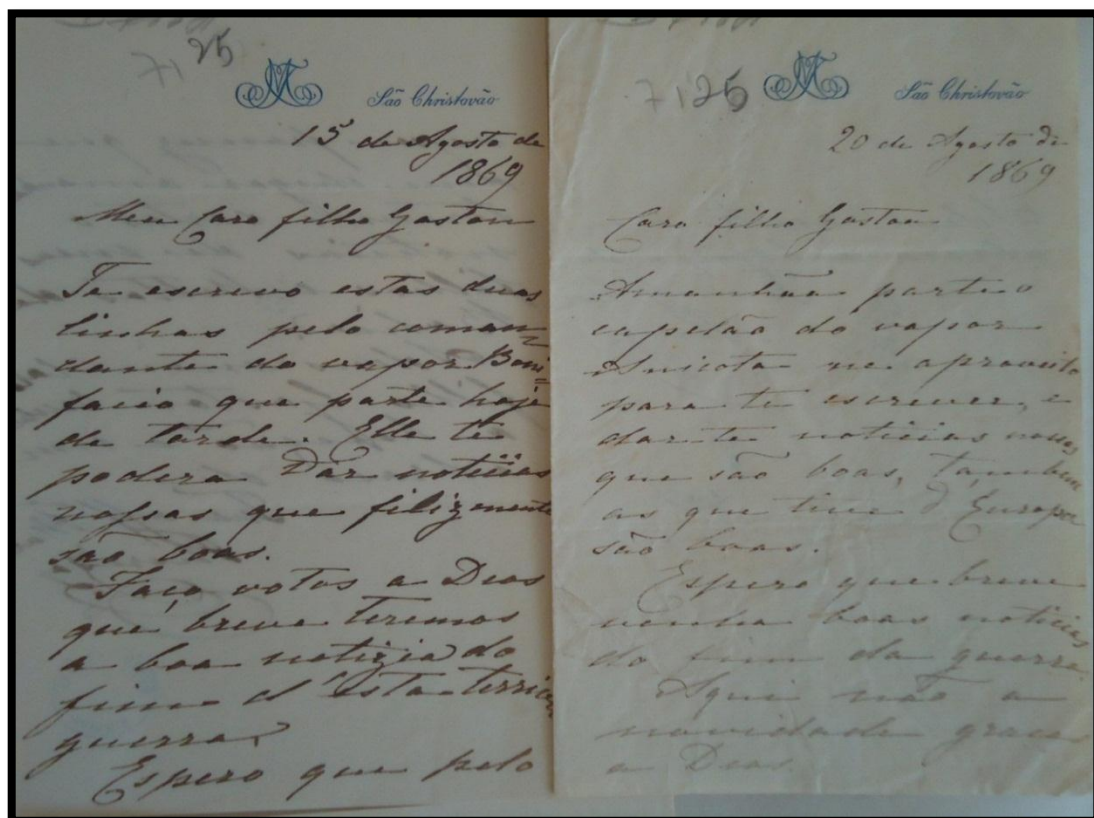 7125
São Christovão
15 de Agosto de
1869
Meu Caro filho Gaston
Te escrevo estas duas
linhas pelo coman=
dante do vapor Boni=
facio que parte hoje
de tarde. Elle te
podera Dar noticias
nossas que filizmente
são boas.
Faço votos a Deos
que breve teremos
a boa notizia do
fim d'esta terrivel
guerra.
Espero que pelo
7126
São Christovão
20 de Agosto de
1869
Caro filho Gaston
Amanhãa parte o
capelão do vapor
me aproveito
para te escrever, e
dar te noticias nossas
que são boas, tambem
as que tive d'Europa
são boas.
Espero que breve
venha boas noticias
do fim da guerra.
Aqui não a
novidade graças
a Deos.